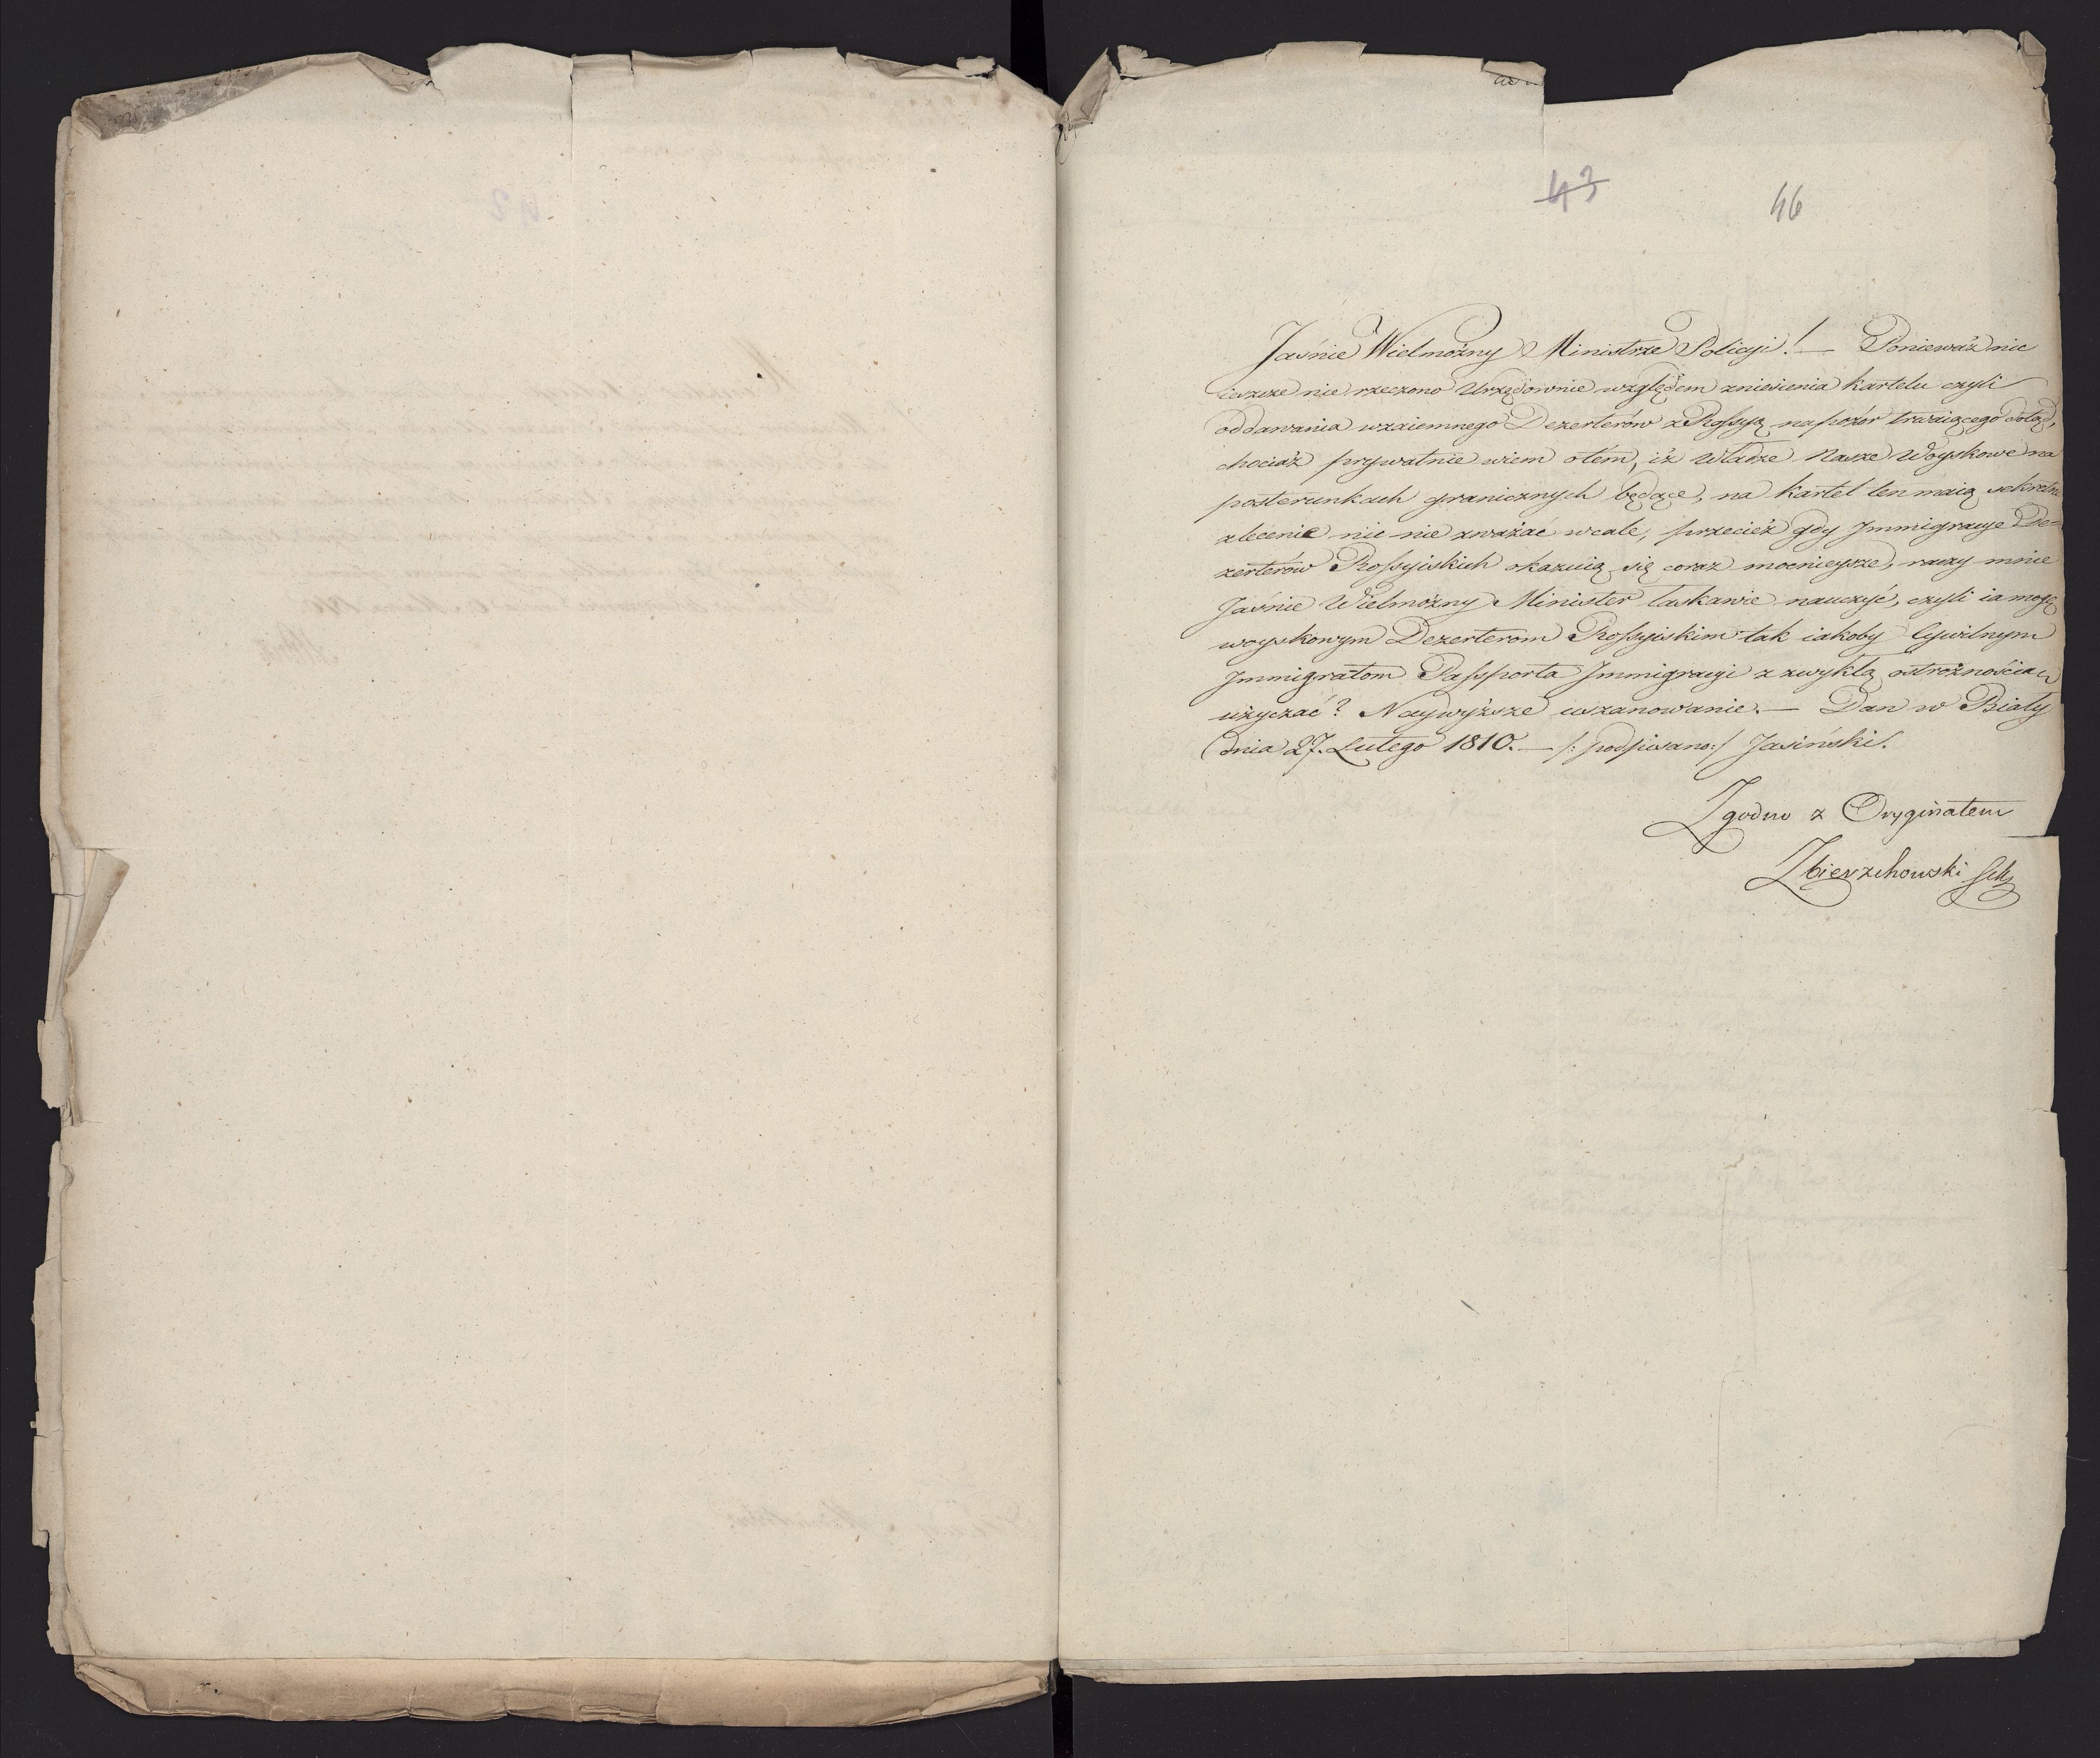 43
46
Jaśnie Wielmożny Ministrze Policyi! — Ponieważ nic
ieszcze nie rzeczono Urzędownie względem zniesienia kartelu czyli
oddawania wzaiemnego Dezerterów z Rossyą na pozór trwaiącego dotąd,
chociaż prywatnie wiem otém, iż Władze Nasze Woyskowe na
posterunkach granicznych będące, na kartel ten maią sekretne
zlecenie nic nie zważać wcale, przecież gdy Jmmigracye De=
zerterów Rossyiskich okazuią się coraz mocnieysze, raczy mnie
Jaśnie Wielmożny Minister łaskawie nauczyć, czyli ia mogę
woyskowym Dezerterom Rossyiskim tak iakoby Cywilnym
Jmmigratom Passporta Jmmigracyi z zwykłą ostrożnością
użyczać? Naywyższe uszanowanie. — Dan w Biały
dnia 27. Lutego 1810. — /: podpisano :/ Jasiński.
Zgodno z Oryginałem
Zbierzchowski